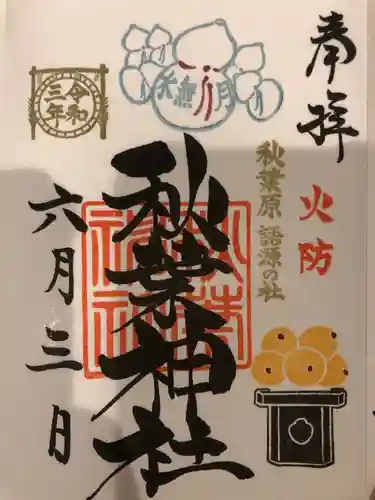 奉拝
火防
秋葉原 語源の社
水無月
秋葉神社
秋葉神社
令和三年
六月三日